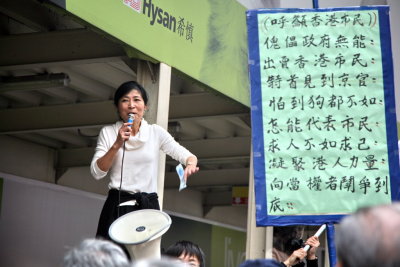 Hysan希慎
(呼籲香港市民)
傀儡政府無能：
出賣香港市民：
特首見到京官：
怕到狗都不如：
怎能代表市民：
求人不如求己：
凝聚港人力量：
向當權者鬧爭到
底：：